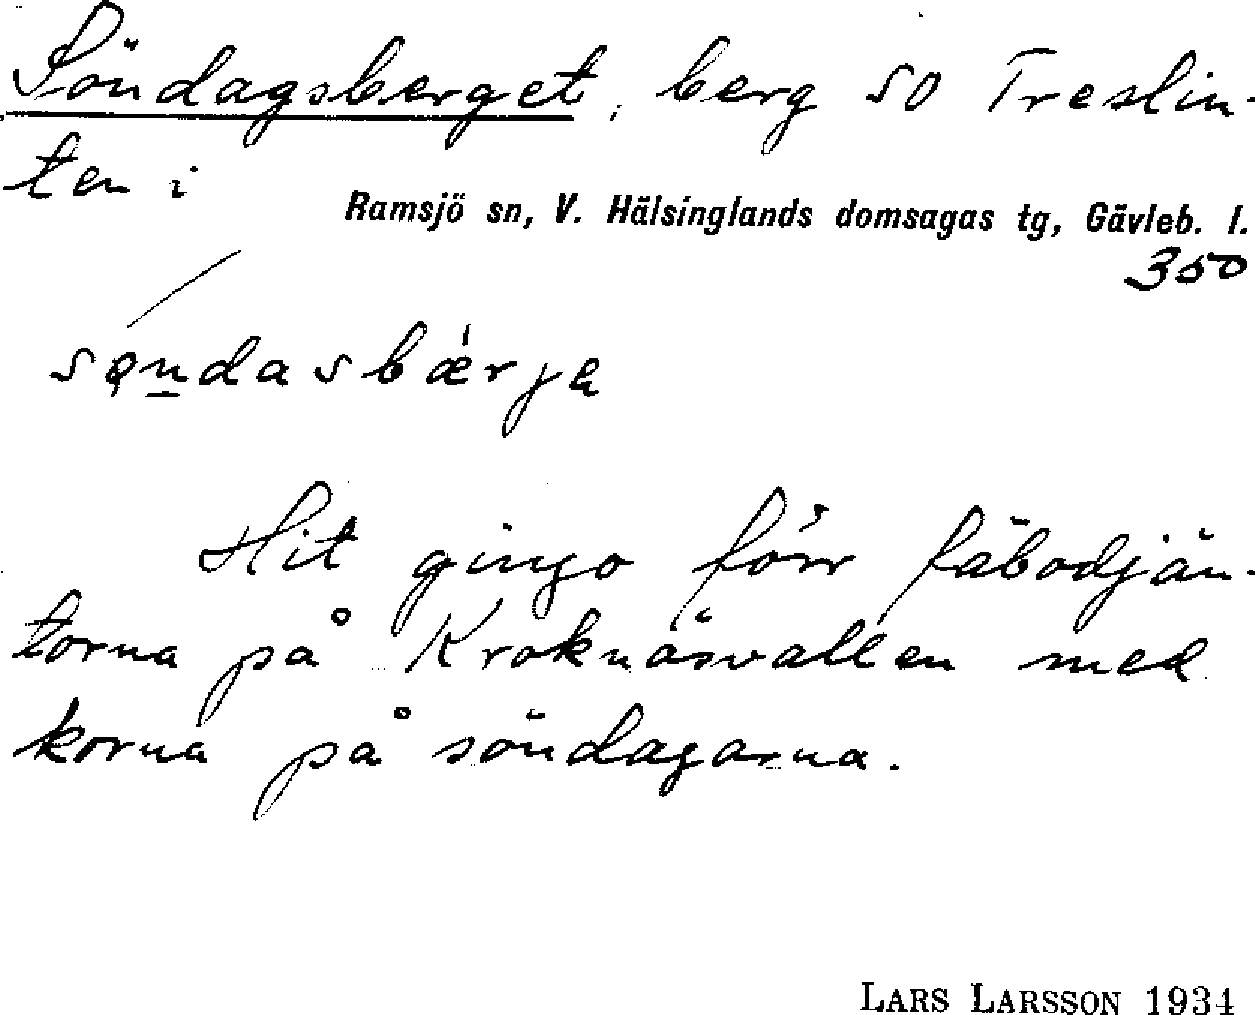 Söndagsberget, berg SO Treslin-
ten i
Ramsjö sn, V. Hälsinglands domsagas tg, Gävleb. l.
350
sǫndasbærje
Hit gingo förr fäbodjän-
torna på Kroknäsvallen med
korna på söndagarna.
LARS LARSSON 1934